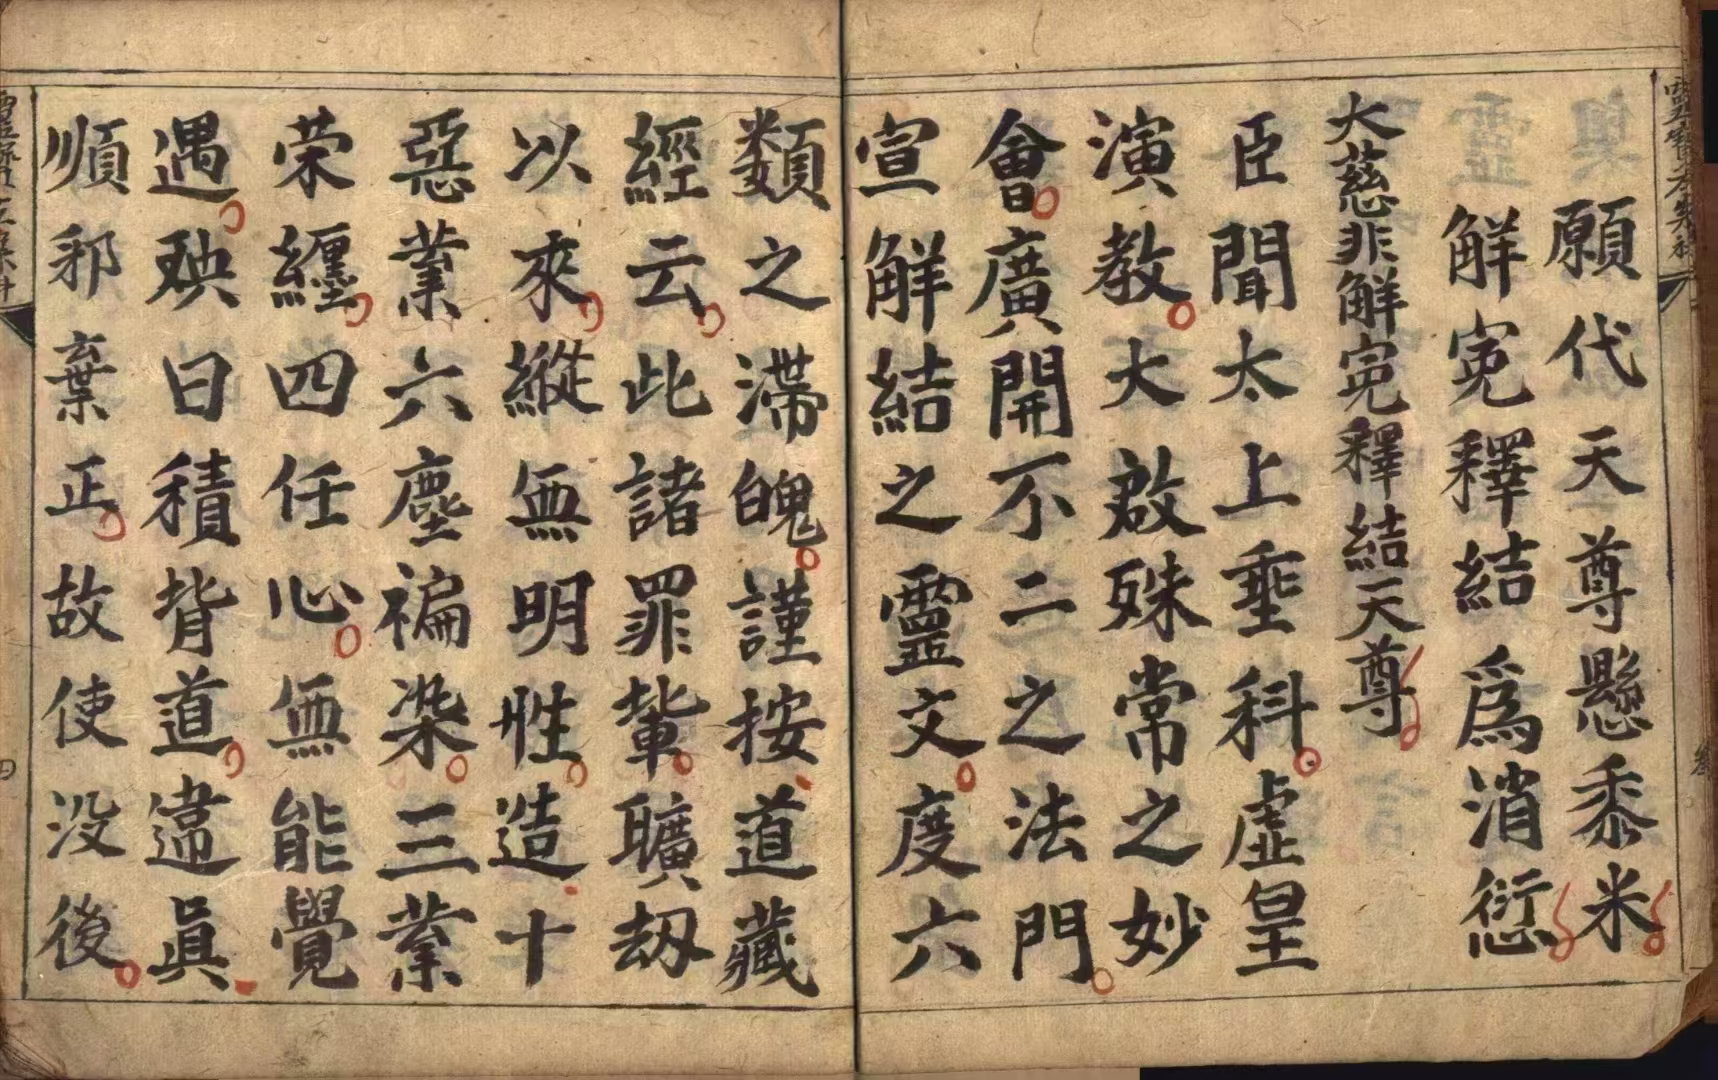 願代天尊懸黍米
解寃釋結爲消愆
大慈悲解寃釋結天尊
臣聞太上垂科虛皇
演教大啟殊常之妙
會廣開不二之法門
宣解結之靈文度六
類之滯魄謹按道藏
經云此諸罪輩曠刼
以來縱無明性造十
惡業六塵褊染三業
荣纏四任心無能覺
遇殃日積背道違眞
順邪棄正故使没後